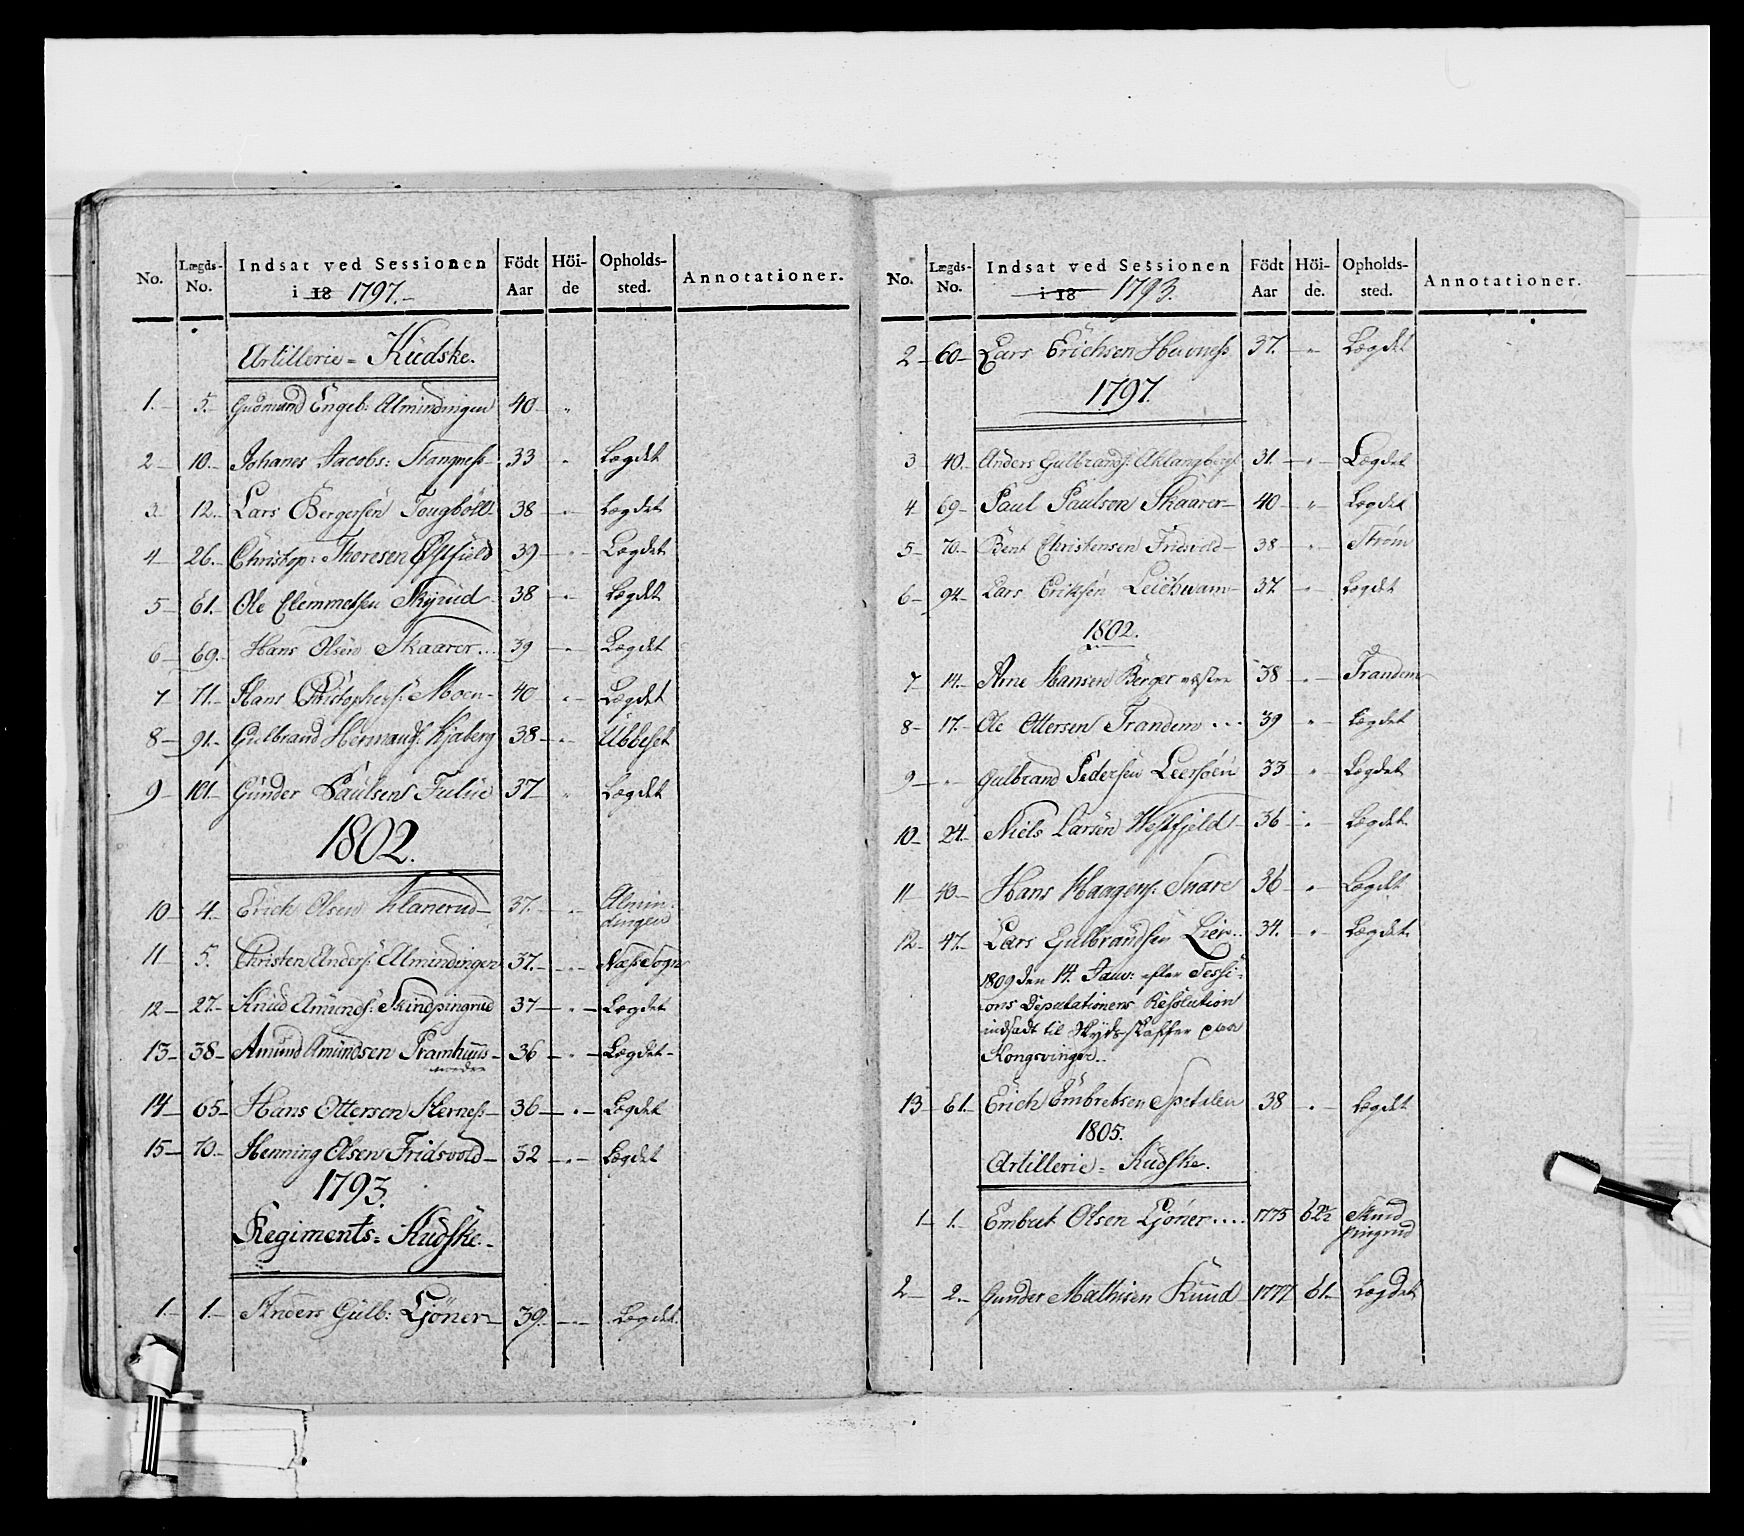 No. Lægds-No. Indsat ved Sessionen i 18 1797.- Födt Aar Höi-de Opholds-sted. Annotationer.
Artillerie = Kudske.
1.- 5.- Gudmund Engeb: Almindingen 40- "
2- 10.- Johanes Jacobs: Stangness- 33 - Lægdet
3- 12.- Lars Bergersen Tougböll- 38 -"- Lægdet
4- 26.- Christop: Thoresen Østfield 39 -"- Lægdet
5- 61.- Ole Clemmetsen Skyrud 38 -"- Lægdet
6- 69.- Hans Olsen Skaarer... 39 -"- Lægdet
7- 71.- Hans Christophers: Moen- 40 -"- Lægdet
8- 91.- Gulbrand Hermands: Kjaberg 38-"- Ubbeset
9- 101- Gunder Paulsen Fulue 37- " Lægdet
1802.
10- 4.- Erich Olsen Klanerud- 37.-"- Almin-
dingen
11- 5. Christen Anders: Almindingen 37.-"- Næs Sogn
12- 27.- Knud Amunds: Skindpingrud 37-"- Lægdet
13- 38- Amund Amundsen Pramhuus- 36-"- Lægdet-
nedre
14- 65- Hans Ottersen Herness- 36-"- Lægdet
15- 70.- Henning Olsen Fridsvold- 32-"- Lægdet
1793.
Regiments = Kudske.-
1.- 1.- Anders Gulb: Gjöner- 39.-"- Lægdet
No. Lægds-No. Indsat ved Sessionen i 18 1793. Födt Aar Höi-de. Opholds-sted. Annotationer.
2- 60- Lars Erichsen Herness 37. -"- Lægdet
1797.
3 40.- Anders Gulbrands: Aklangberg 31. -"- Lægdet
4- 69- Paul Paulsen Skaarer- 40 -"- Lægdet
5- 70.- Bent Christensen Fridsvold- 38 -"- Ström
6- 94- Lars Eriksen Leichvam- 37. -"- Lægdet
1802.
7- 14.- Arne Hansen Berger westre 38 -"- Trandem
8- 17.- Ole Ottersen Trandem... 39 " Lægdet
9- -"- Gulbrand Pedersen Leersöen 33 " Lægdet
10- 24.- Niels Larsen Westfjeld- 36 -"- Lægdet
11- 40- Hans Haagens: Snare 36 -"- Lægdet
12- 47.- Lars Gulbrandsen Lier.. 34. -"- Lægdet
1809 den 14. Janu: efter Sessi-
ons Deputationens Resolution
indsadt til Skyds skaffer
Kongsvinger..
13- 61.- Erich Embretsen Spetalen 38 -"- Lægdet
1805.
Artillerie = Kudske.
1- 1.- Embret Olsen Gjöner.... 1775 62½ Skind
pingrud
2- 2.- Gunder Mathisen Kuud 1777. 61.- Lægdet